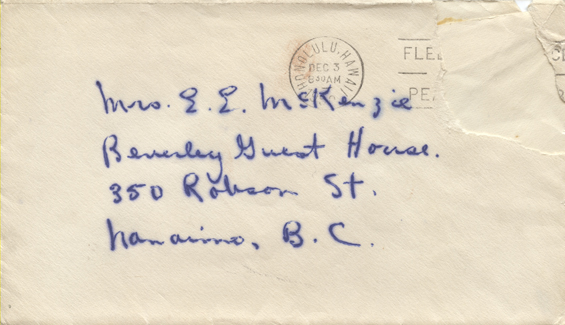 HONOLULU, HAWAII
DEC 3
8 30 AM
FLE
PEA
Mrs. E. E. McKenzie
Beverley Guest House.
350 Robson St.
Nanaimo, B. C.